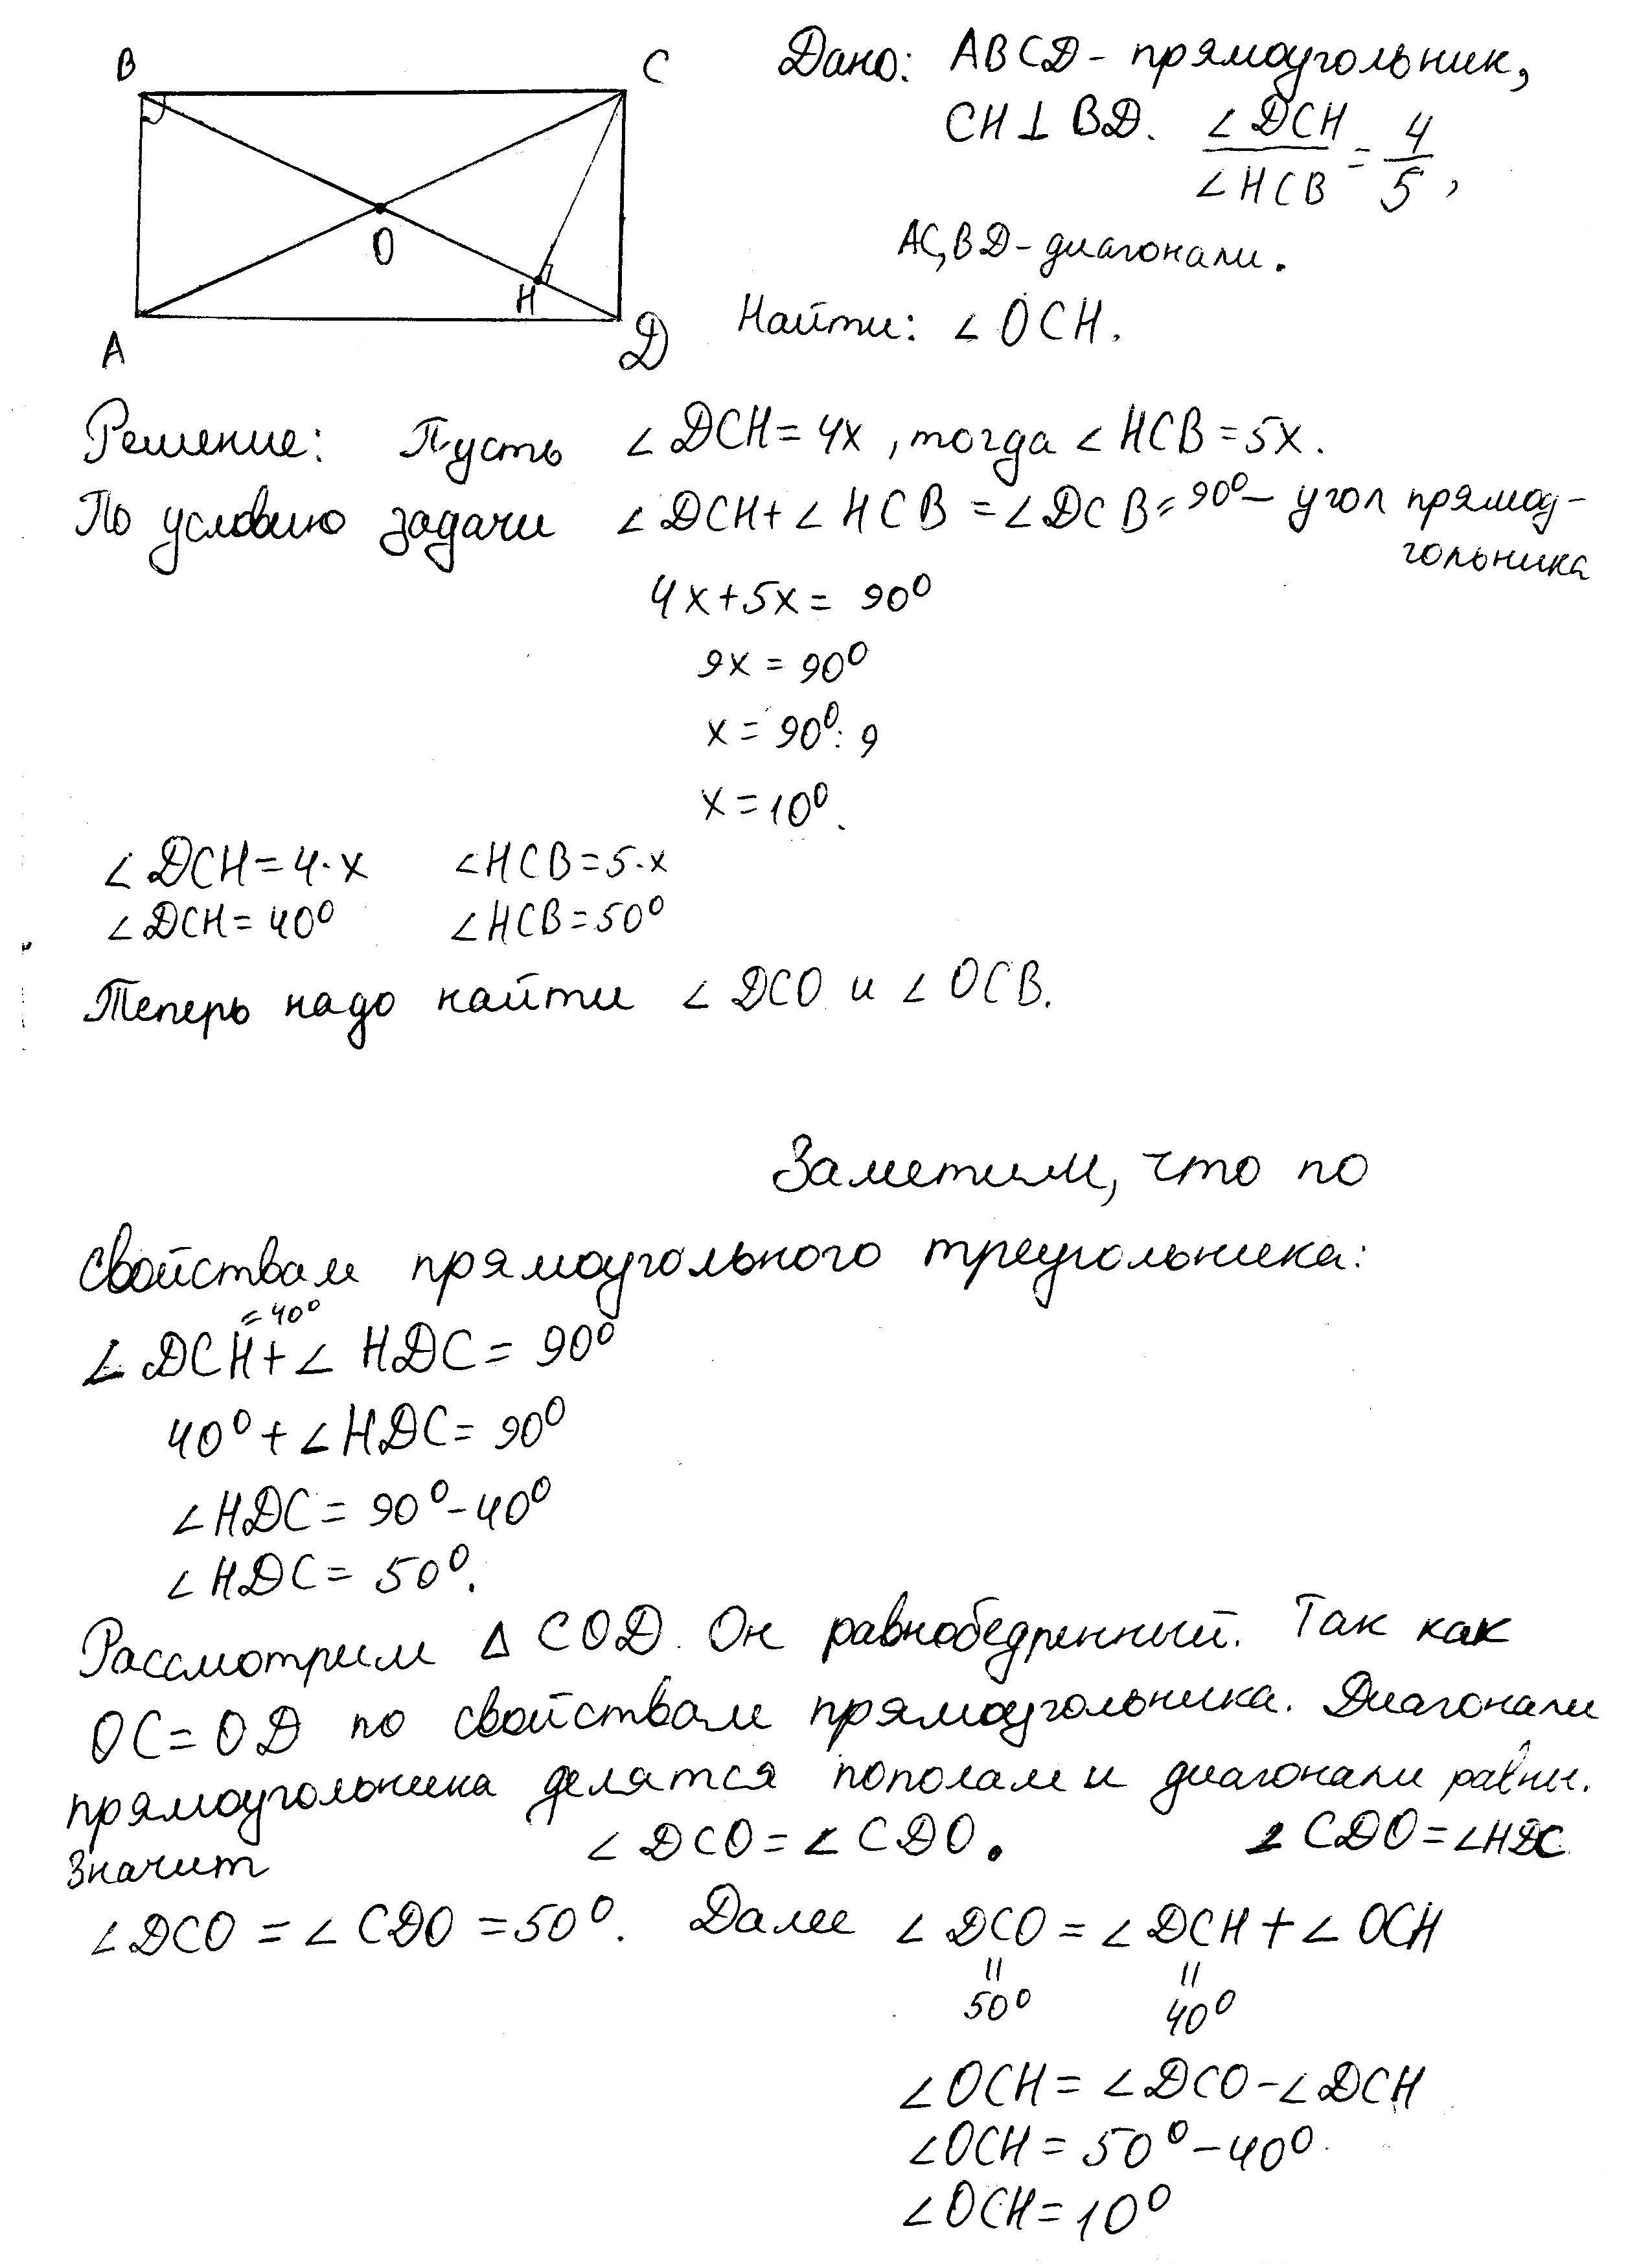 B
C
O
H
A
D
Дано: ABCD - прямоугольник,
CH ⊥ BD. ∠DCH / ∠HCB = 4/5,
AC, BD - диагонали.
Найти: ∠OCH.
Решение: Пусть ∠DCH = 4x, тогда ∠HCB = 5x.
По условию задачи ∠DCH + ∠HCB = ∠DCB = 90° - угол прямоу-
гольника
4x + 5x = 90°
9x = 90°
x = 90° : 9
x = 10°.
∠DCH = 4·x ∠HCB = 5·x
∠DCH = 40° ∠HCB = 50°
Теперь надо найти ∠DCO и ∠OCB.
Заметим, что по
свойствам прямоугольного треугольника:
= 40°
∠DCH + ∠HDC = 90°
40° + ∠HDC = 90°
∠HDC = 90° - 40°
∠HDC = 50°.
Рассмотрим △ COD. Он равнобедренный. Так как
OC = OD по свойствам прямоугольника. Диагонали
прямоугольника делятся пополам и диагонали равны.
Значит ∠DCO = ∠CDO. ∠CDO = ∠HDC
∠DCO = ∠CDO = 50°. Далее ∠DCO = ∠DCH + ∠OCH
= =
50° 40°
∠OCH = ∠DCO - ∠DCH
∠OCH = 50° - 40°
∠OCH = 10°